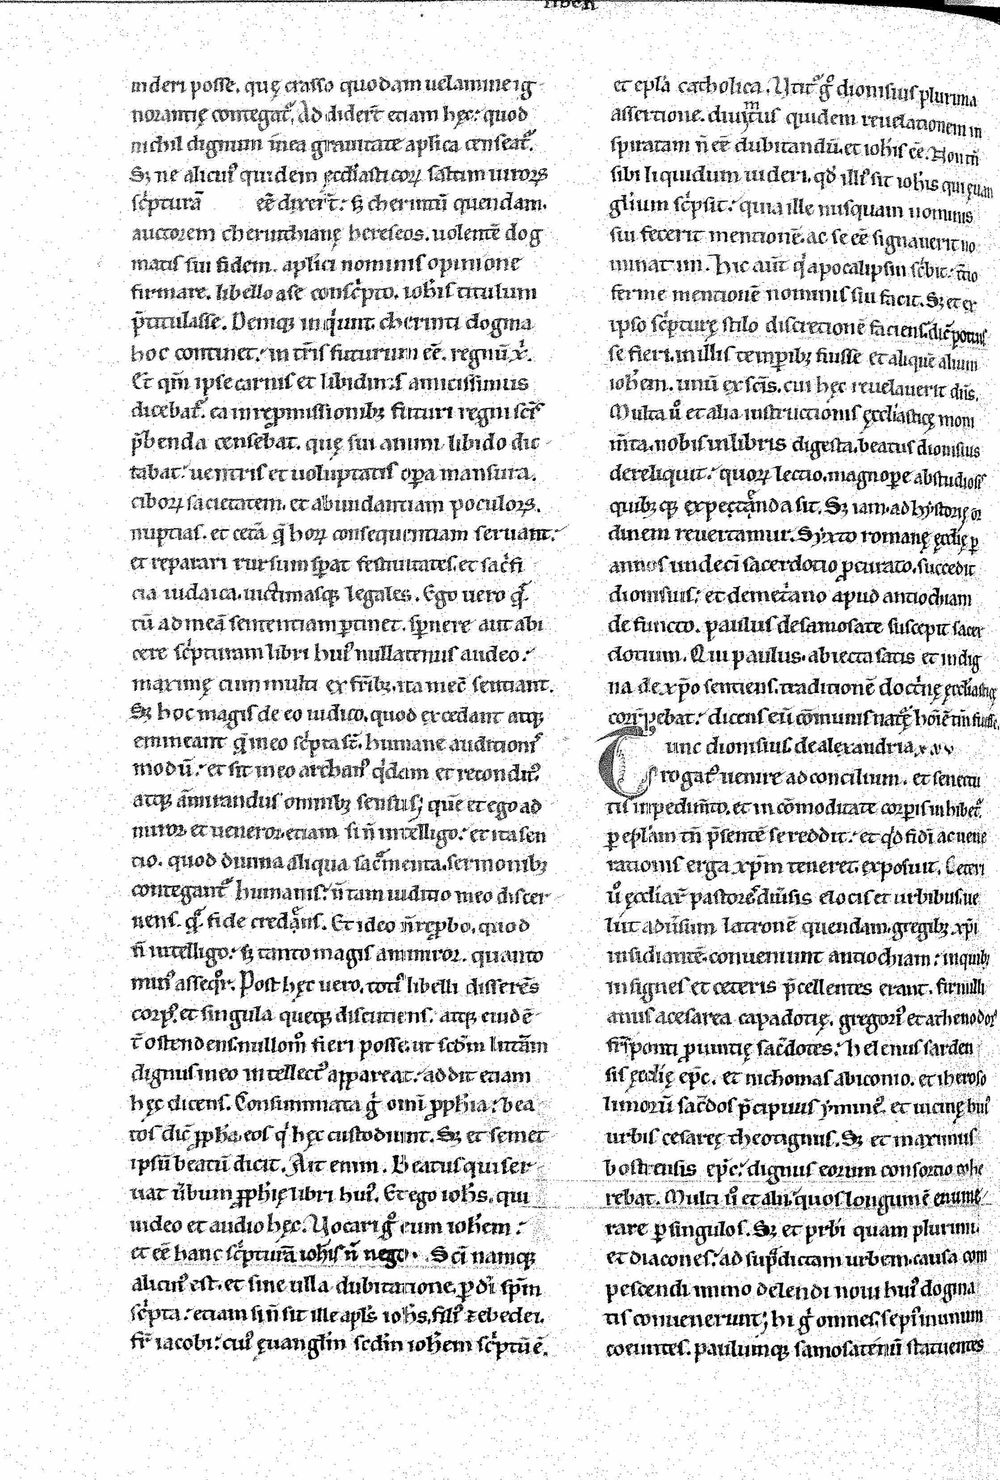 liben
inderi posse. quę crasso quodam uelamine ig
norantię contegat᷒. Addidert̄ etiam hęc: quod
nichil dignum in ea grauitate aplica censeat᷒.
Sꝫ ne alicui᷒ quidem ęccl̄iasticoꝝ saltim uiroꝝ
sc̄pturā eē dixert̄: sꝫ cherintū quendam.
auctorem cherinthianę hereseos. uolentē dog
matis sui fidem. aplīci nominis opinione
firmare. libello a se consc̄pto. ioh̄is titulum
p̄titulasse. Deniqꝫ inquiunt. cherinti dogma
hoc continet: in tr̄is futurum eē. regnū x̄.
Et qm̄ ipse carnis et libidinis amicissimus
dicebat᷒. ea in repmissionibꝫ futuri regni sc̄s
p̄benda censebat. quę sui animi libido dic
tabat: uentris et uoluptatis opa mansura.
ciboꝝ sacietatem. et abundantiam poculoꝝ.
nuptias. et cetā q̄ hoꝝ consequentiam seruant:
et reparari rursum sp̄at festiuitates. et sac̄fi
cia iudaica. uictimasqꝫ legales. Ego uero q̄
tū ad meā sententiam ptinet. sp̄nere aut abi
cere sc̄pturam libri hui᷒ nullatenus audeo:
maximę cum multi ex fr̄ibꝫ. ita mecū sentiant.
Sꝫ hoc magis de eo iudico. quod excedant atqꝫ
emineant q̄ meo sc̄pta st̄. humane auditionis
modū: et sit in eo archan᷒ q̄dam et recondit᷒.
atqꝫ ām̄irandus omnibꝫ sensus; quē et ego ad
miror et ueneror. etiam si n̄ intelligo: et ita sen
tio. quod diuina aliqua sac̄menta. sermonibꝫ
contegant᷒ humanis: n̄ tam iuditio meo discer
nens. q̄ fide credens. Et ideo n̄ repbo. quod
n̄ intelligo: sꝫ tanto magis ammiror. quanto
min᷒ assequor. Post hęc uero. toti᷒ libelli disserēs
corp᷒. et singula queqꝫ discutiens. atqꝫ euidē
t̄ ostendens. nullom̄ fieri posse. ut scdm̄ litām
dignus in eo intellect᷒ appareat: addit etiam
hęc dicens. Consummata g̊ omi ꝓph̄ia: bea
tos dic̄ ꝓph̄a. eos q̄ hęc custodiunt. Sꝫ et semet
ipsū beatū dicit. Ait enim. Beatus qui ser
uat ūbum ꝓph̄ię libri hui᷒. Et ego ioh̄s. qui
uideo et audio hęc. Uocari g̊ eum ioh̄em:
et eē hanc sc̄pturā ioh̄is n̄ nego. Sc̄i namqꝫ
alicui᷒ est. et sine ulla dubitatione. p dī sp̄m
sc̄pta: etiam si n̄ sit ille apl̄s ioh̄s. fili᷒ zebedei.
fr̄ iacobi: cui᷒ ęuanglīn scdm̄ ioh̄em sc̄ptū ē.
et epl̄a catholica. Utit᷒ g̊ dionisius plurima
assertione. diuinitus quidem reuelationem in
spiratam n̄ eē dubitandū. et ioh̄is eē. Non tn̄
sibi liquidum uideri. qd̄ illi᷒ sit ioh̄is qui ęuan
gl̄ium sc̄psit: quia ille nusquam nominis
sui fecerit mentionē. ac se eē signauerit no
minatim. Hic aut̄ q̄ apocalipsin sc̄bit: t̄tio
ferme mentionē nominis sui facit. Sꝫ et ex
ipso sc̄pturę stilo discretionē faciens. dic̄ potius
se fieri. in illis tempribꝫ fuisse et aliquē alium
ioh̄em. unū ex sc̄is. cui hęc reuelauerit dn̄s.
Multa ū et alia instructionis ęccl̄iasticę moni
m̄ta. nobis in libris digesta. beatus dionisius
dereliquit: quoꝝ lectio. magnope ab studiosis
quibꝫqꝫ expectanda sit. Sꝫ iam. ad hystorię or
dinem reuertamur. Syxto romanę ęccl̄ię p
annos undeci sacerdotio pcurato. succedit
dionisius: et demet̄ano apud antiochiam
defuncto. paulus de samosate suscepit sacer
dotium. Qui paulus. abiecta satis et indig
na de xp̄o sentiens. traditionē doct̄nę ęccl̄iasticę
corrūpebat: dicens eū cōmunis nat̄ę hoīem tm̄ fuisse.
Tunc dionisius de alexandria. xxv
rogat᷒ uenire ad concilium. et senectu
tis inpedim̄to. et incōmoditate corpis inhibet᷒.
p epl̄am tn̄ p̄sentē se reddit: et qd̄ fidī ac uene
rationis erga xp̄m teneret. exposuit. Ceteri
ū ęccl̄iar̄ pastores diūsis e locis et urbibus. ue
lut adūsum latronē quendam. gregibꝫ xp̄i
insidiantē. conueniunt antiochiam: in quibꝫ
insignes et ceteris p̄cellentes erant. firmilli
anus a cesarea capadotię. gregori᷒ et athenodor᷒
fr̄s ponti puintię sac̄dotes: helenus sarden
sis ęccl̄ię ep̄c. et nichomas ab iconio. et iheroso
limorū sac̄dos p̄cipuus ymine᷒. et uicinę hui᷒
urbis cesarę theotignus. Sꝫ et maximus
bostrensis ep̄c: dignus eorum consortio cohe
rebat. Multi ū et alii. quos longum ē enume
rare p singulos. Sꝫ et prb̄i quam plurimi.
et diacones: ad sup̄dictam urbem. causa com
pescendi immo delendi noui hui᷒ dogma
tis conuenerunt; hi g̊ omnes. sepissimum
coeuntes. paulumqꝫ samosatenū statuentes